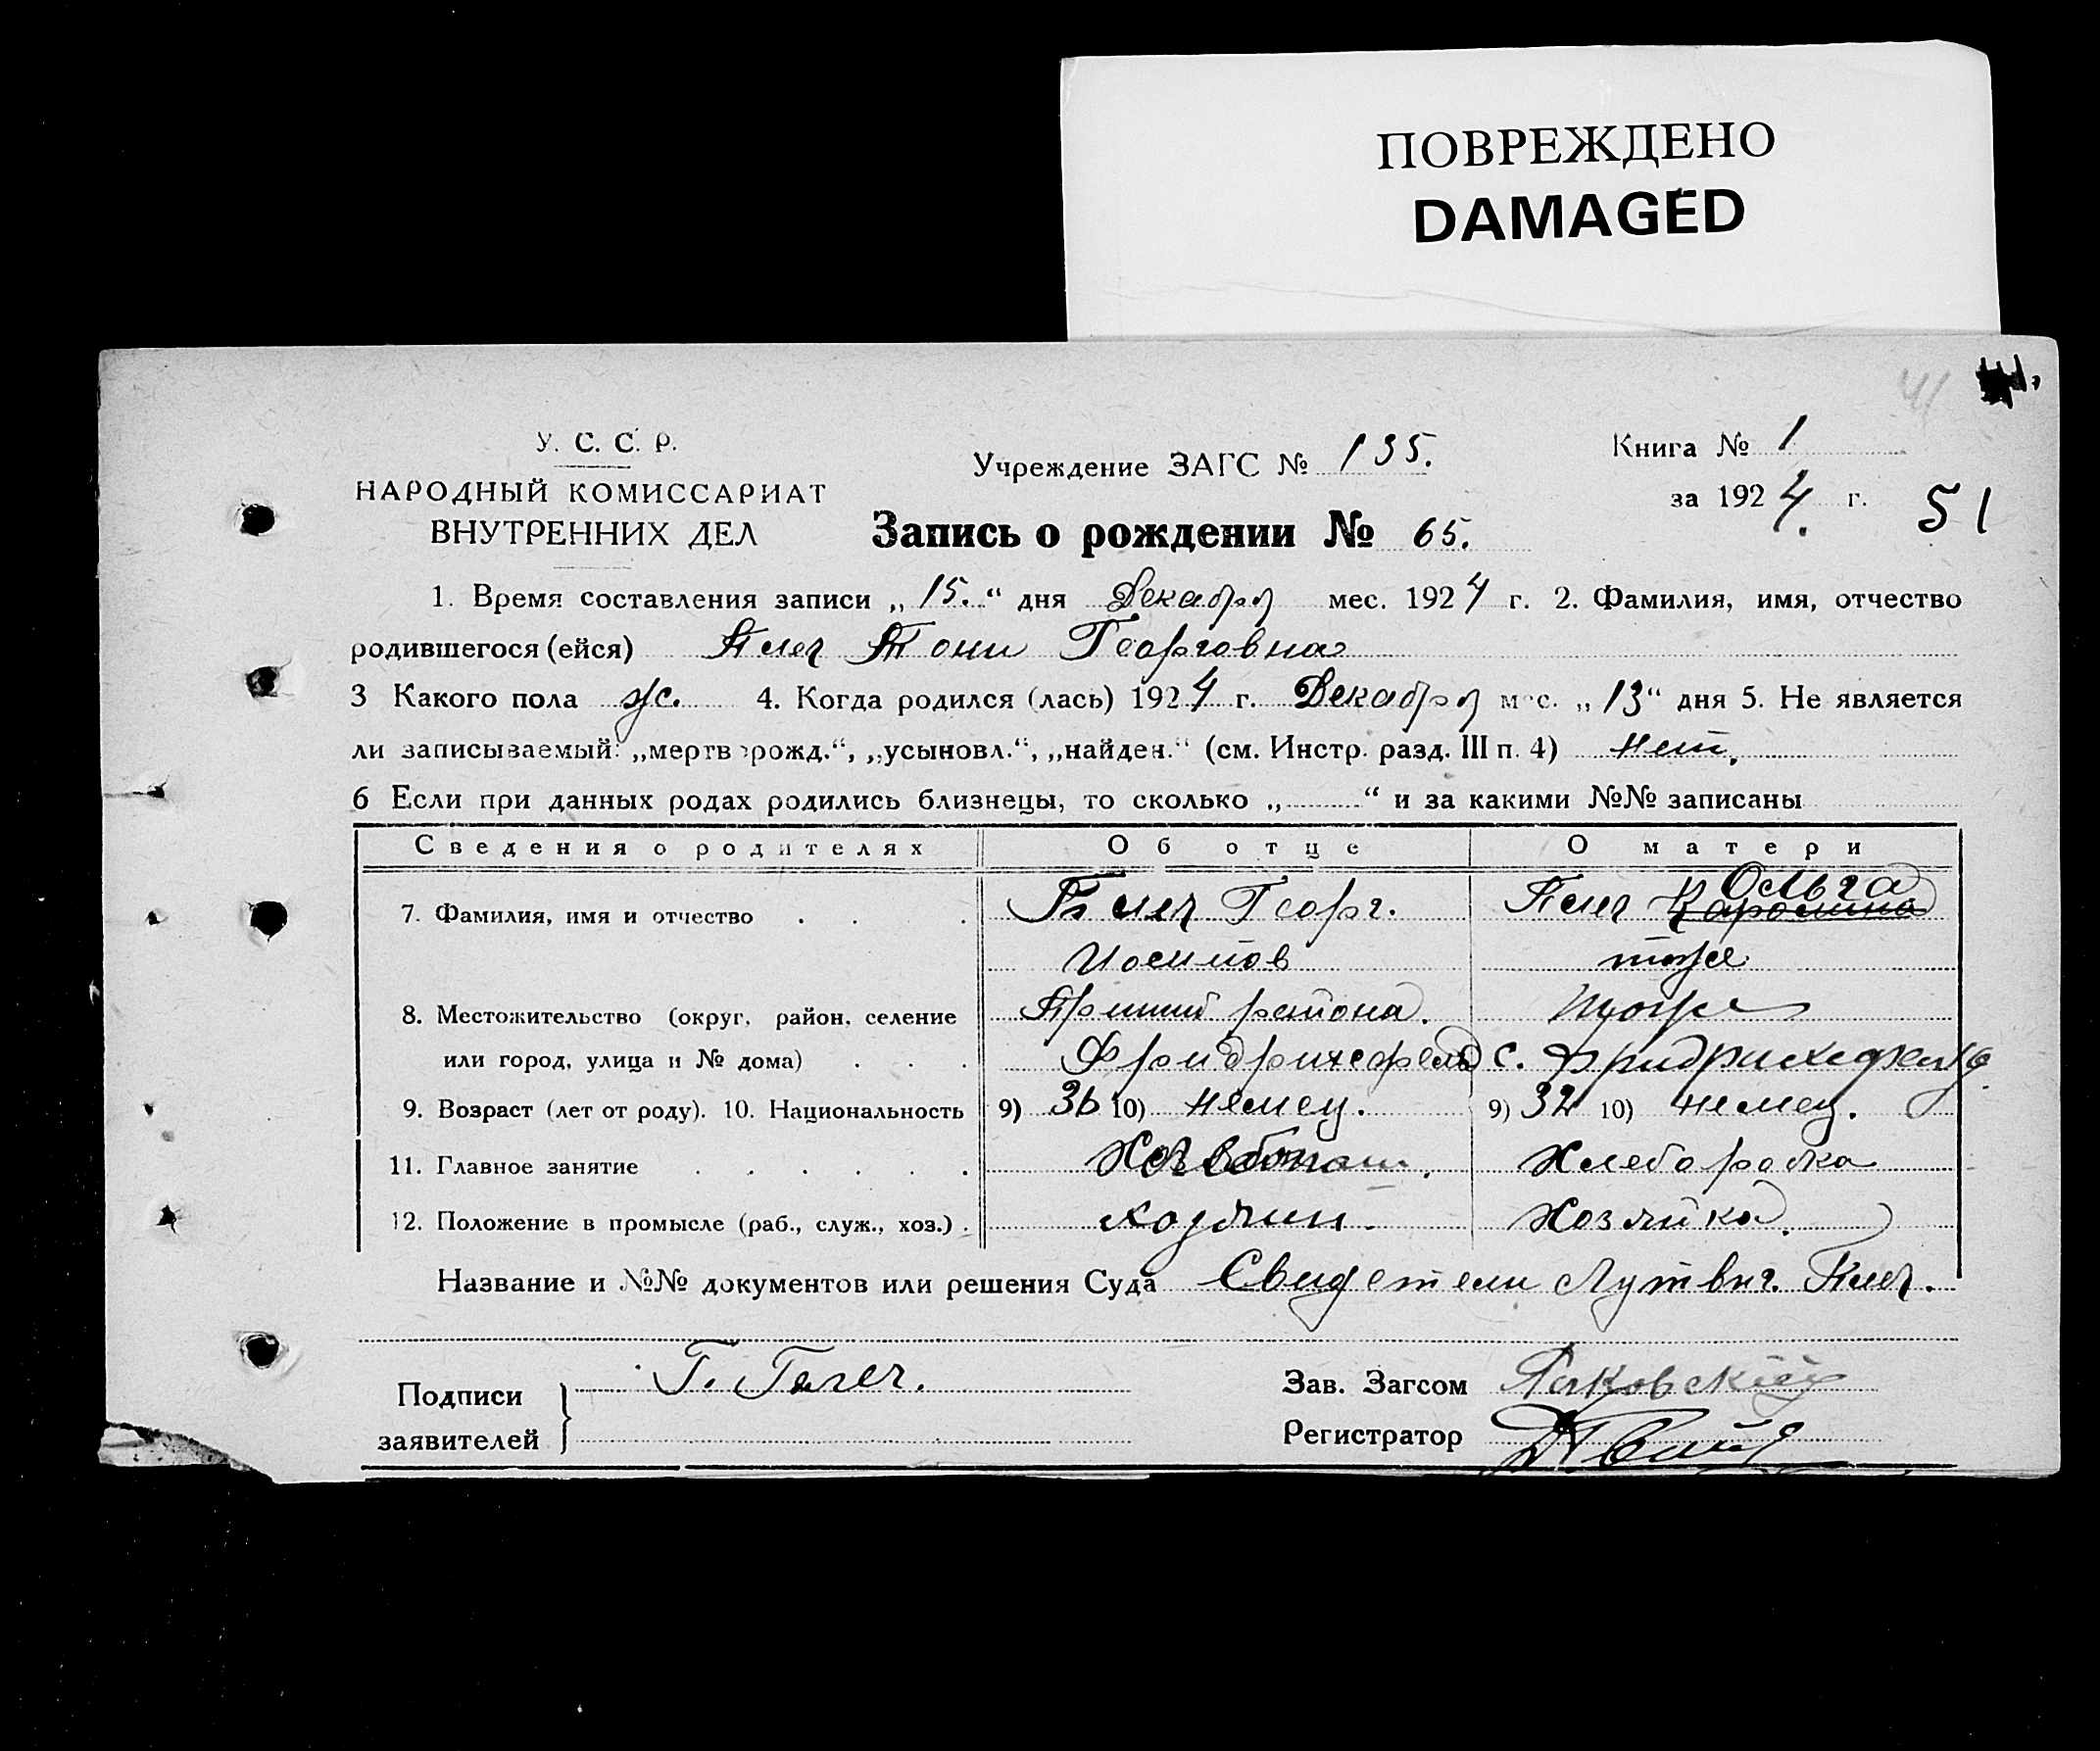 ПОВРЕЖДЕНО
DAMAGED
41
У. С. С. Р.
НАРОДНЫЙ КОМИССАРИАТ
ВНУТРЕННИХ ДЕЛ
Учреждение ЗАГС № 135.
Книга № 1
за 1924. г.
51
Запись о рождении № 65.
1. Время составления записи „15.“ дня Декабря мес. 1924 г. 2. Фамилия, имя, отчество
родившегося (ейся) Тони Георговна
3 Какого пола ж. 4. Когда родился (лась) 1924 г. Декабря мес. „13“ дня 5. Не является
ли записываемый: „мертворожд.“, „усыновл.“, „найден.“ (см. Инстр. разд. III п. 4) нет.
6 Если при данных родах родились близнецы, то сколько „ “ и за какими №№ записаны
Сведения о родителях Об отце О матери
7. Фамилия, имя и отчество Георг. Ольга Каролина
Иосипов тоже
8. Местожительство (округ, район, селение района. тоже
или город, улица и № дома) Фридрихсфельд с. Фридрихсфельд
9. Возраст (лет от роду). 10. Национальность 9) 36 10) немец. 9) 32 10) немец.
11. Главное занятие Хлеборобка
12. Положение в промысле (раб., служ., хоз.) хозяин. Хозяйка.
Название и №№ документов или решения Суда Свидетели Лутвиг.
Подписи
заявителей
Г.
Зав. Загсом
Регистратор